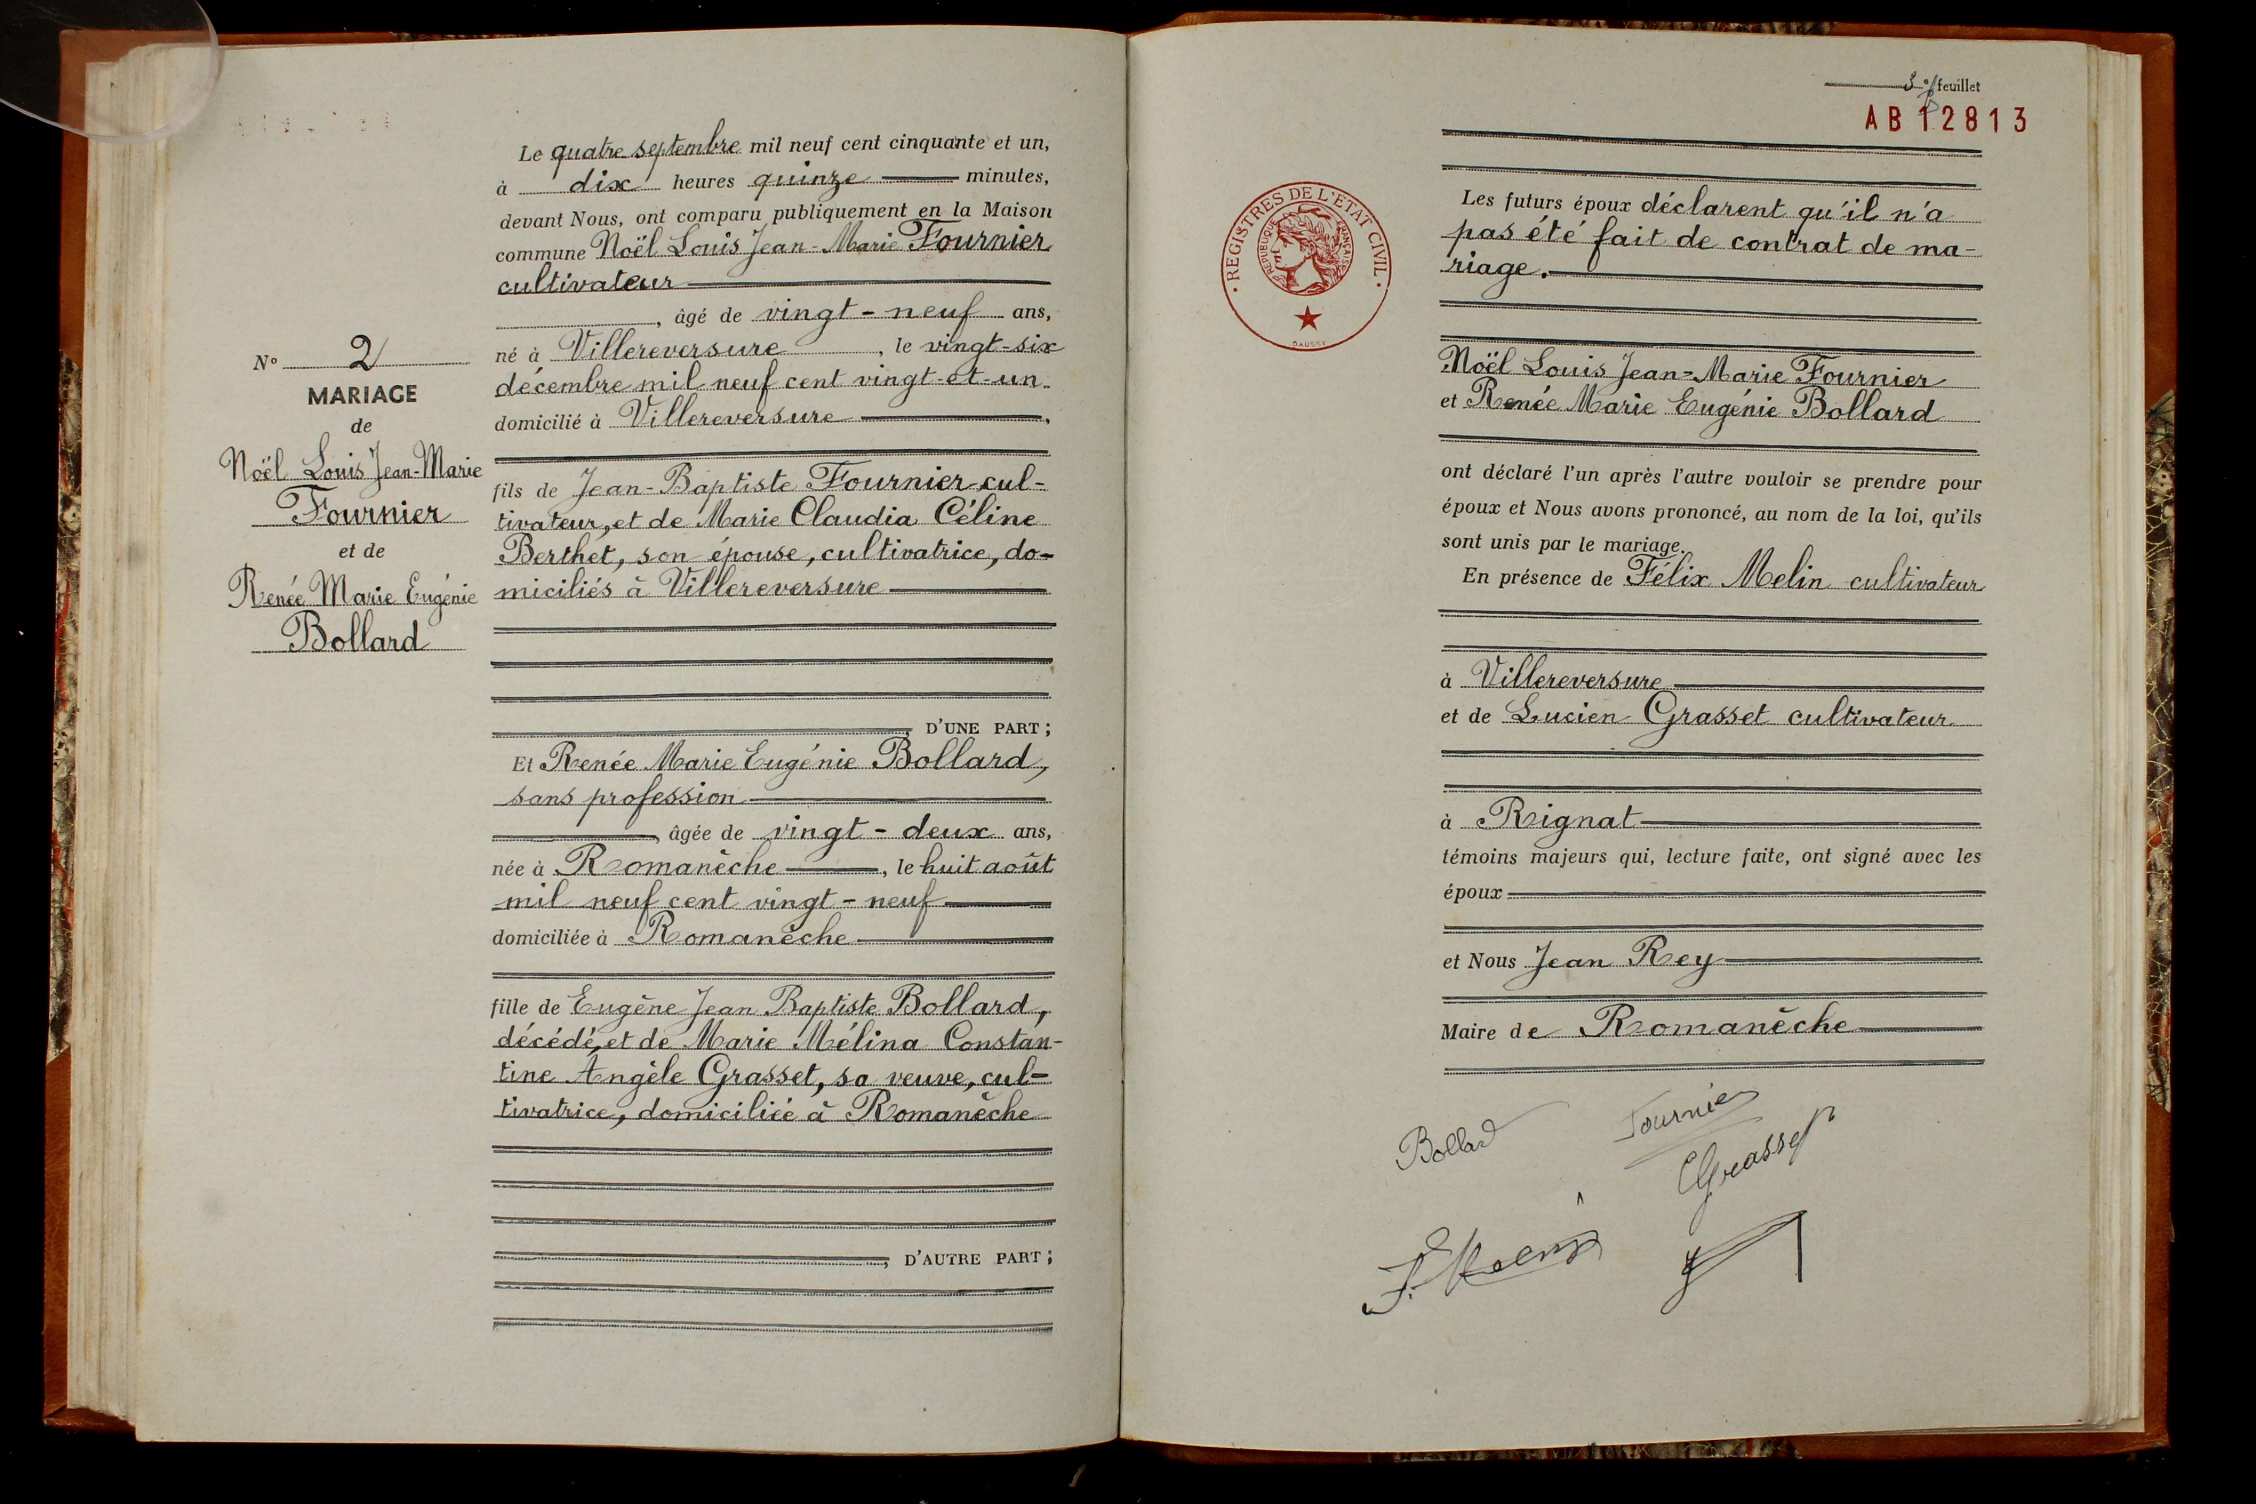 N° 2
MARIAGE
de
Noël Louis Jean-Marie
Fournier
et de
Renée Marie Eugénie
Bollard
Le quatre septembre mil neuf cent cinquante et un,
à dix heures quinze minutes,
devant Nous, ont comparu publiquement en la Maison
commune Noël Louis Jean-Marie Fournier
cultivateur
, âgé de vingt-neuf ans,
né à Villereversure, le vingt-six
décembre mil neuf cent vingt-et-un
domicilié à Villereversure.
fils de Jean-Baptiste Fournier cul-
tivateur, et de Marie Claudia Céline
Berthet, son épouse, cultivatrice, do-
miciliés à Villereversure
D'UNE PART;
Et Renée Marie Eugénie Bollard,
sans profession
, âgée de vingt-deux ans,
née à Romanèche, le huit août
mil neuf cent vingt-neuf
domiciliée à Romanèche
fille de Eugène Jean Baptiste Bollard,
décédé, et de Marie Mélina Constan-
tine Angèle Grasset, sa veuve, cul-
tivatrice, domiciliée à Romanèche
, D'AUTRE PART;
feuillet
AB 12813
REGISTRES DE L'ÉTAT CIVIL
RÉPUBLIQUE FRANÇAISE
DAUSSY
Les futurs époux déclarent qu'il n'a
pas été fait de contrat de ma-
riage.
Noël Louis Jean=Marie Fournier
et Renée Marie Eugénie Bollard
ont déclaré l'un après l'autre vouloir se prendre pour
époux et Nous avons prononcé, au nom de la loi, qu'ils
sont unis par le mariage.
En présence de Félix Melin cultivateur
à Villereversure
et de Lucien Grasset cultivateur
à Rignat
témoins majeurs qui, lecture faite, ont signé avec les
époux
et Nous Jean Rey
Maire de Romanèche
Bollard
Fournier
Grasset